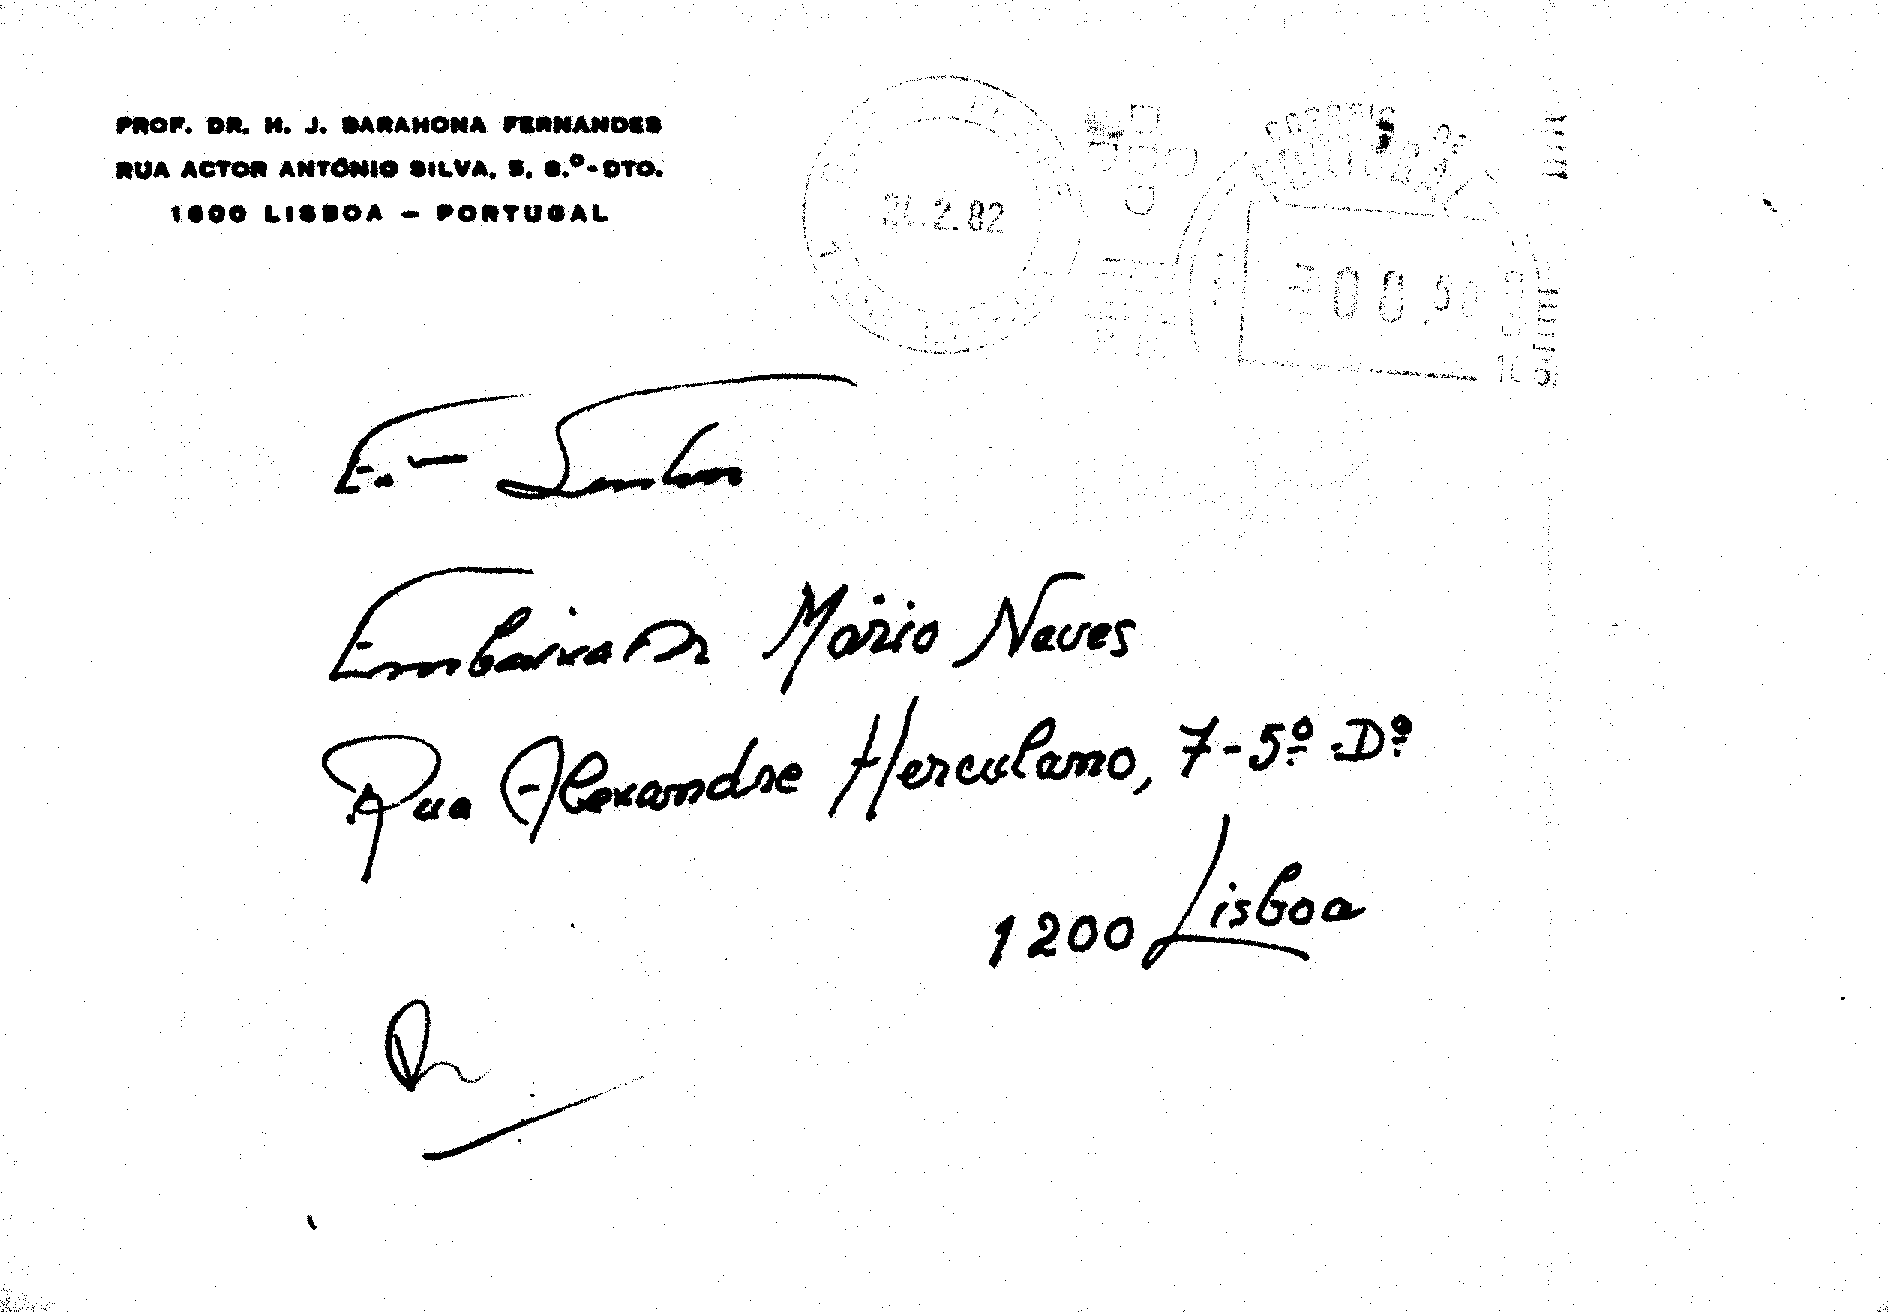 PROF. DR. H. J. BARAHONA FERNANDES
RUA ACTOR ANTÓNIO SILVA, 5, 8.º-DTO.
1600 LISBOA - PORTUGAL
CORREIO DE
PORTUGAL
.2.82
00.
E.mo Senhor
Embaixador Mário Neves
Rua Alexandre Herculano, 7-5º-Dº
1200 Lisboa